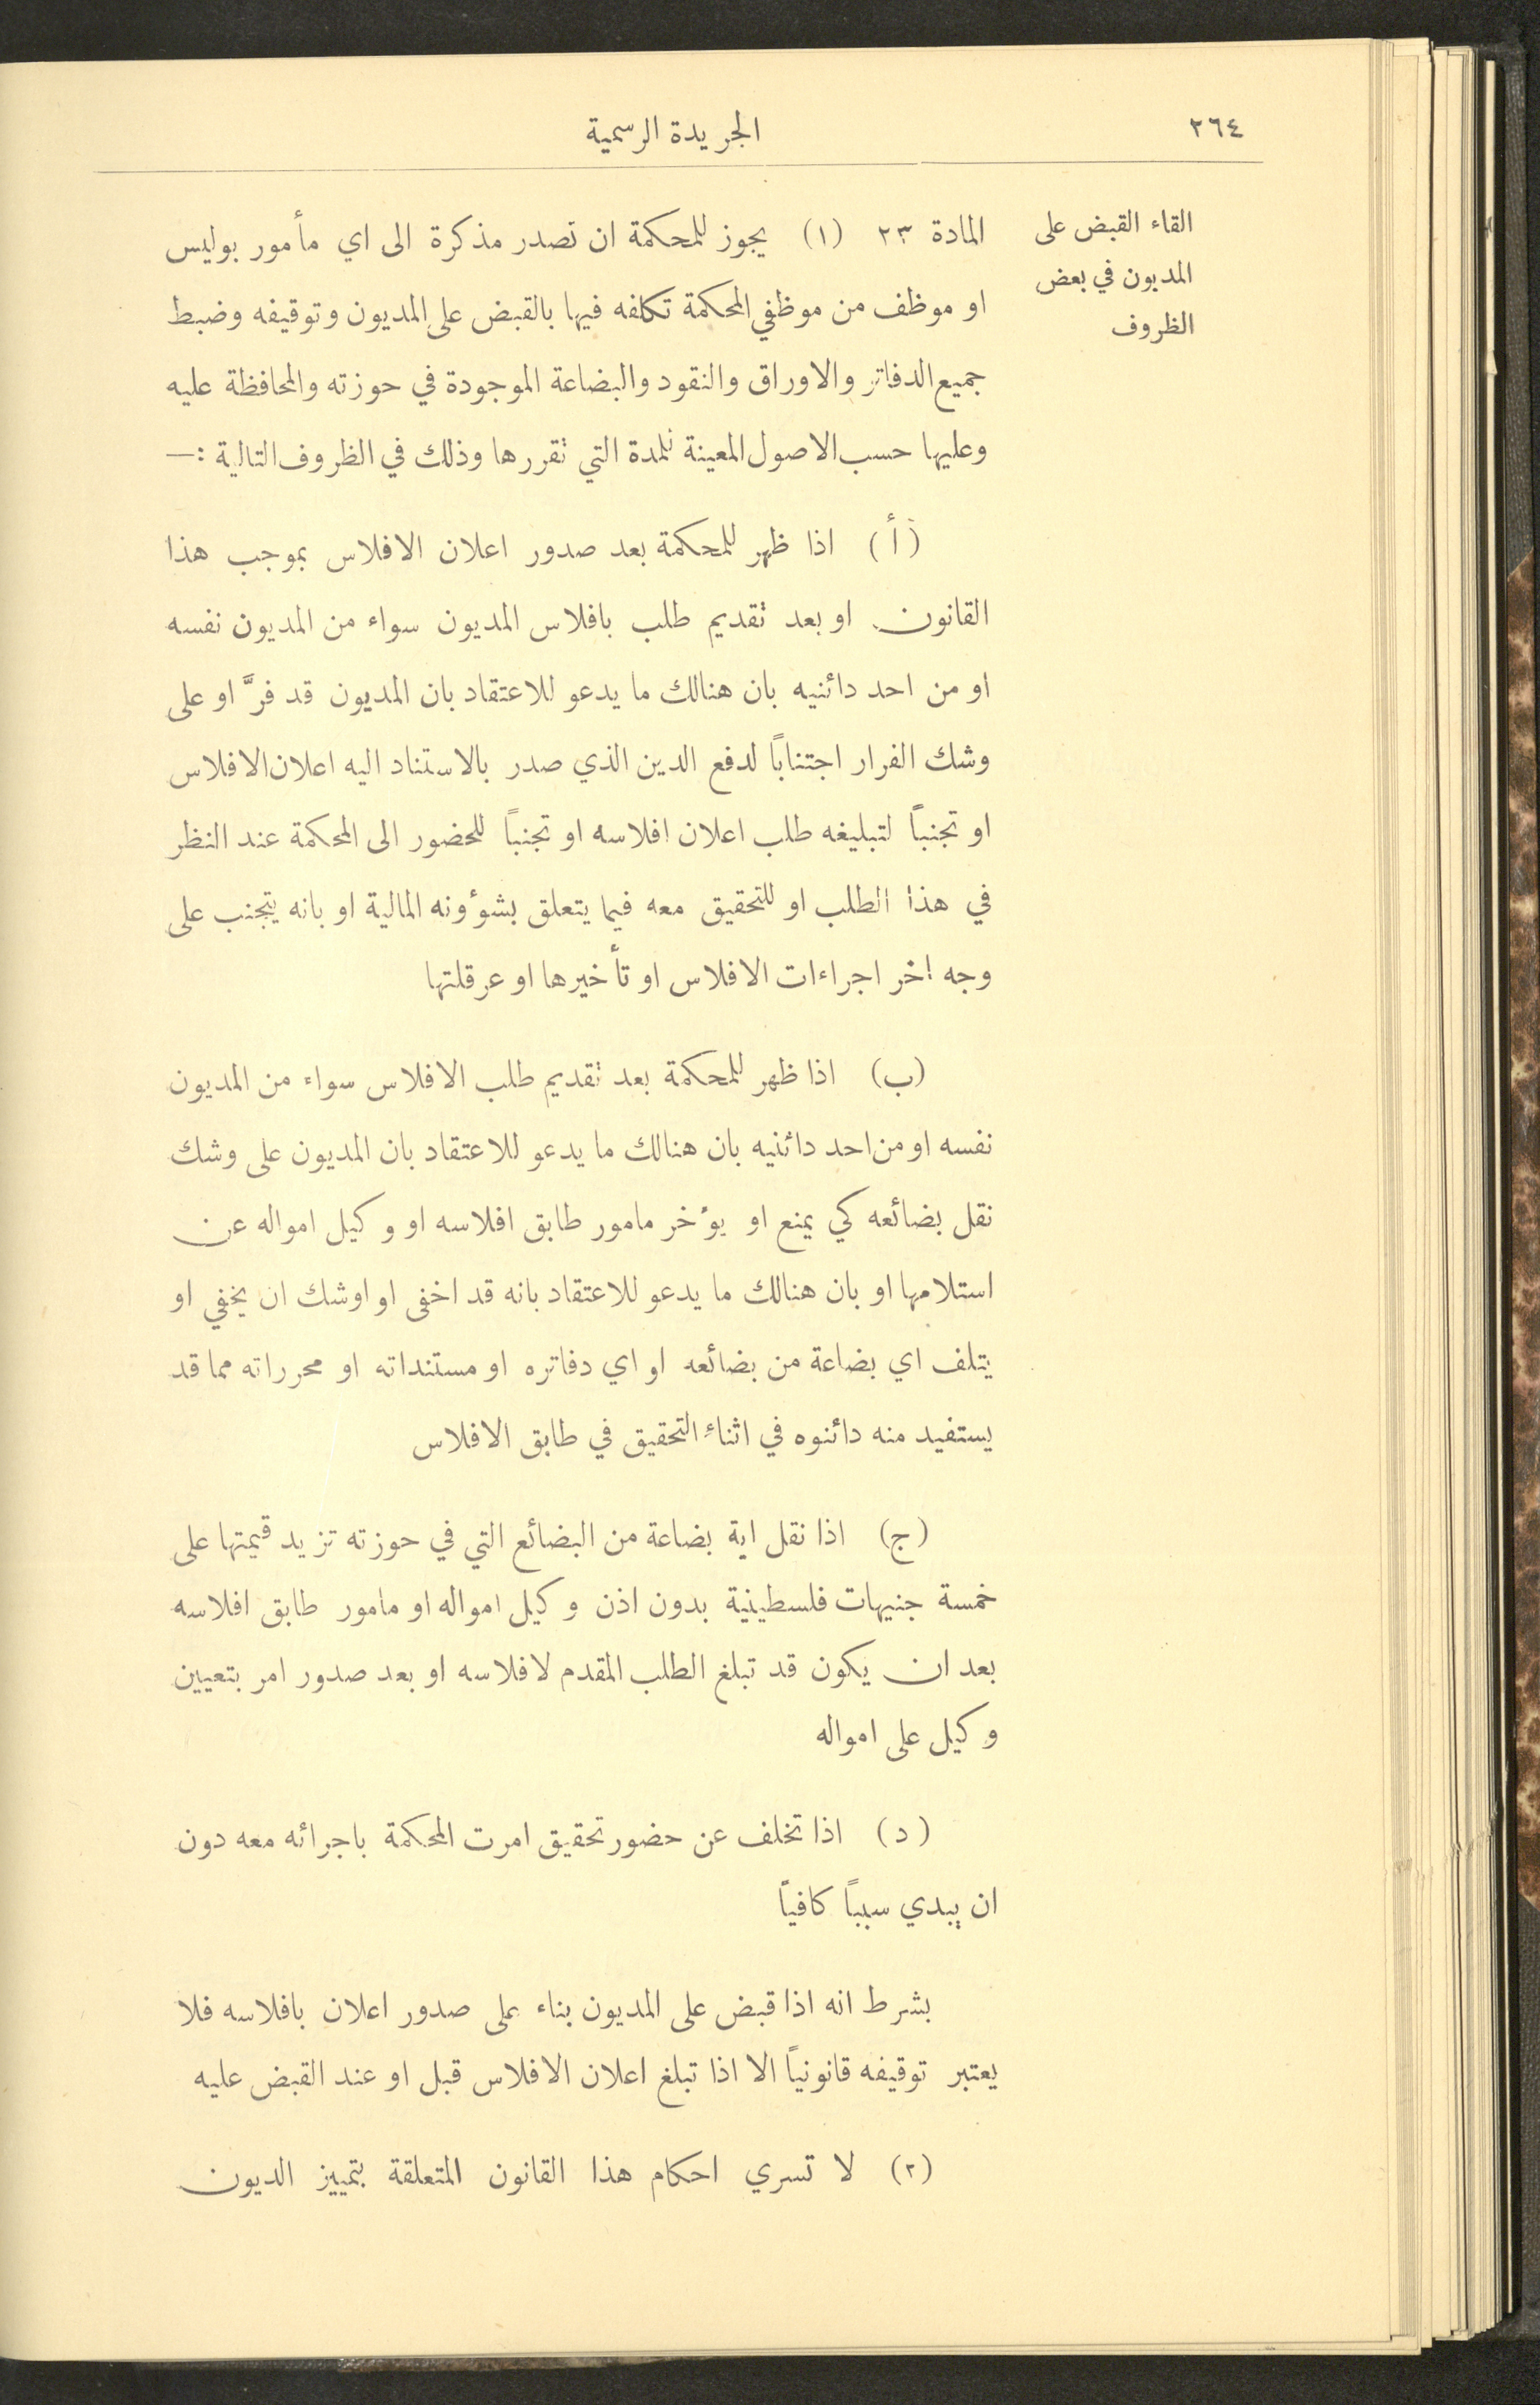 ٢٦٤
الجريدة الرسمية
القاء القبض على
المديون في بعض
الظروف
المادة ٢٣ (١) يجوز للمحكمة ان تصدر مذكرة الى اي مأمور بوليس
او موظف من موظفي المحكمة تكلفه فيها بالقبض على المديون وتوقيفه وضبط
جميع الدفاتر والاوراق والنقود والبضاعة الموجودة في حوزته والمحافظة عليه
وعليها حسب الاصول المعينة للمدة التي تقررها وذلك في الظروف التالية :—
(أ) اذا ظهر للمحكمة بعد صدور اعلان الافلاس بموجب هذا
القانون او بعد تقديم طلب بافلاس المديون سواء من المديون نفسه
او من احد دائنيه بان هنالك ما يدعو للاعتقاد بان المديون قد فرَّ او على
وشك الفرار اجتناباً لدفع الدين الذي صدر بالاستناد اليه اعلان الافلاس
او تجنباً لتبليغه طلب اعلان افلاسه او تجنباً للحضور الى المحكمة عند النظر
في هذا الطلب او للتحقيق معه فيما يتعلق بشؤونه المالية او بانه يتجنب على
وجه اخر اجراءات الافلاس او تأخيرها او عرقلتها
(ب) اذا ظهر للمحكمة بعد تقديم طلب الافلاس سواء من المديون
نفسه او من احد دائنيه بان هنالك ما يدعو للاعتقاد بان المديون على وشك
نقل بضائعه كي يمنع او يؤخر مامور طابق افلاسه او وكيل امواله عن
استلامها او بان هنالك ما يدعو للاعتقاد بانه قد اخفى او اوشك ان يخفي او
يتلف اي بضاعة من بضائعه او اي دفاتره او مستنداته او محرراته مما قد
يستفيد منه دائنوه في اثناء التحقيق في طابق الافلاس
(ج) اذا نقل اية بضاعة من البضائع التي في حوزته تزيد قيمتها على
خمسة جنيهات فلسطينية بدون اذن وكيل امواله او مامور طابق افلاسه
بعد ان يكون قد تبلغ الطلب المقدم لافلاسه او بعد صدور امر بتعيين
وكيل على امواله
(د) اذا تخلف عن حضور تحقيق امرت المحكمة باجرائه معه دون
ان يبدي سبباً كافياً
بشرط انه اذا قبض على المديون بناء على صدور اعلان بافلاسه فلا
يعتبر توقيفه قانونياً الا اذا تبلغ اعلان الافلاس قبل او عند القبض عليه
(٢) لا تسري احكام هذا القانون المتعلقة بتمييز الديون